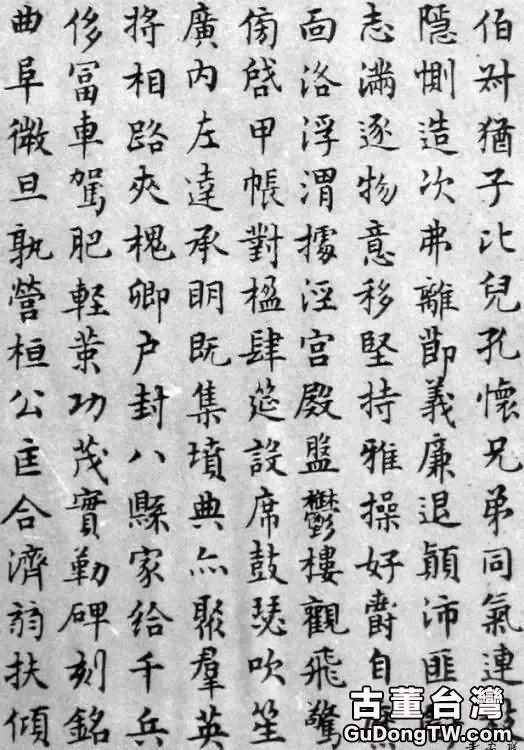 伯叔猶子比兒孔懷兄弟同氣連
隱惻造次弗離節義廉退顛沛匪
志滿逐物意移堅持雅操好爵自
面洛浮渭據涇宮殿盤鬱樓觀飛驚
傍啓甲帳對楹肆筵設席鼓瑟吹笙
廣內左達承明既集墳典亦聚羣英
將相路夾槐卿戶封八縣家給千兵
侈冨車駕肥軽策功茂實勒碑刻銘
曲阜微旦孰營桓公匡合濟弱扶傾
古董台灣
GuDongTW.com